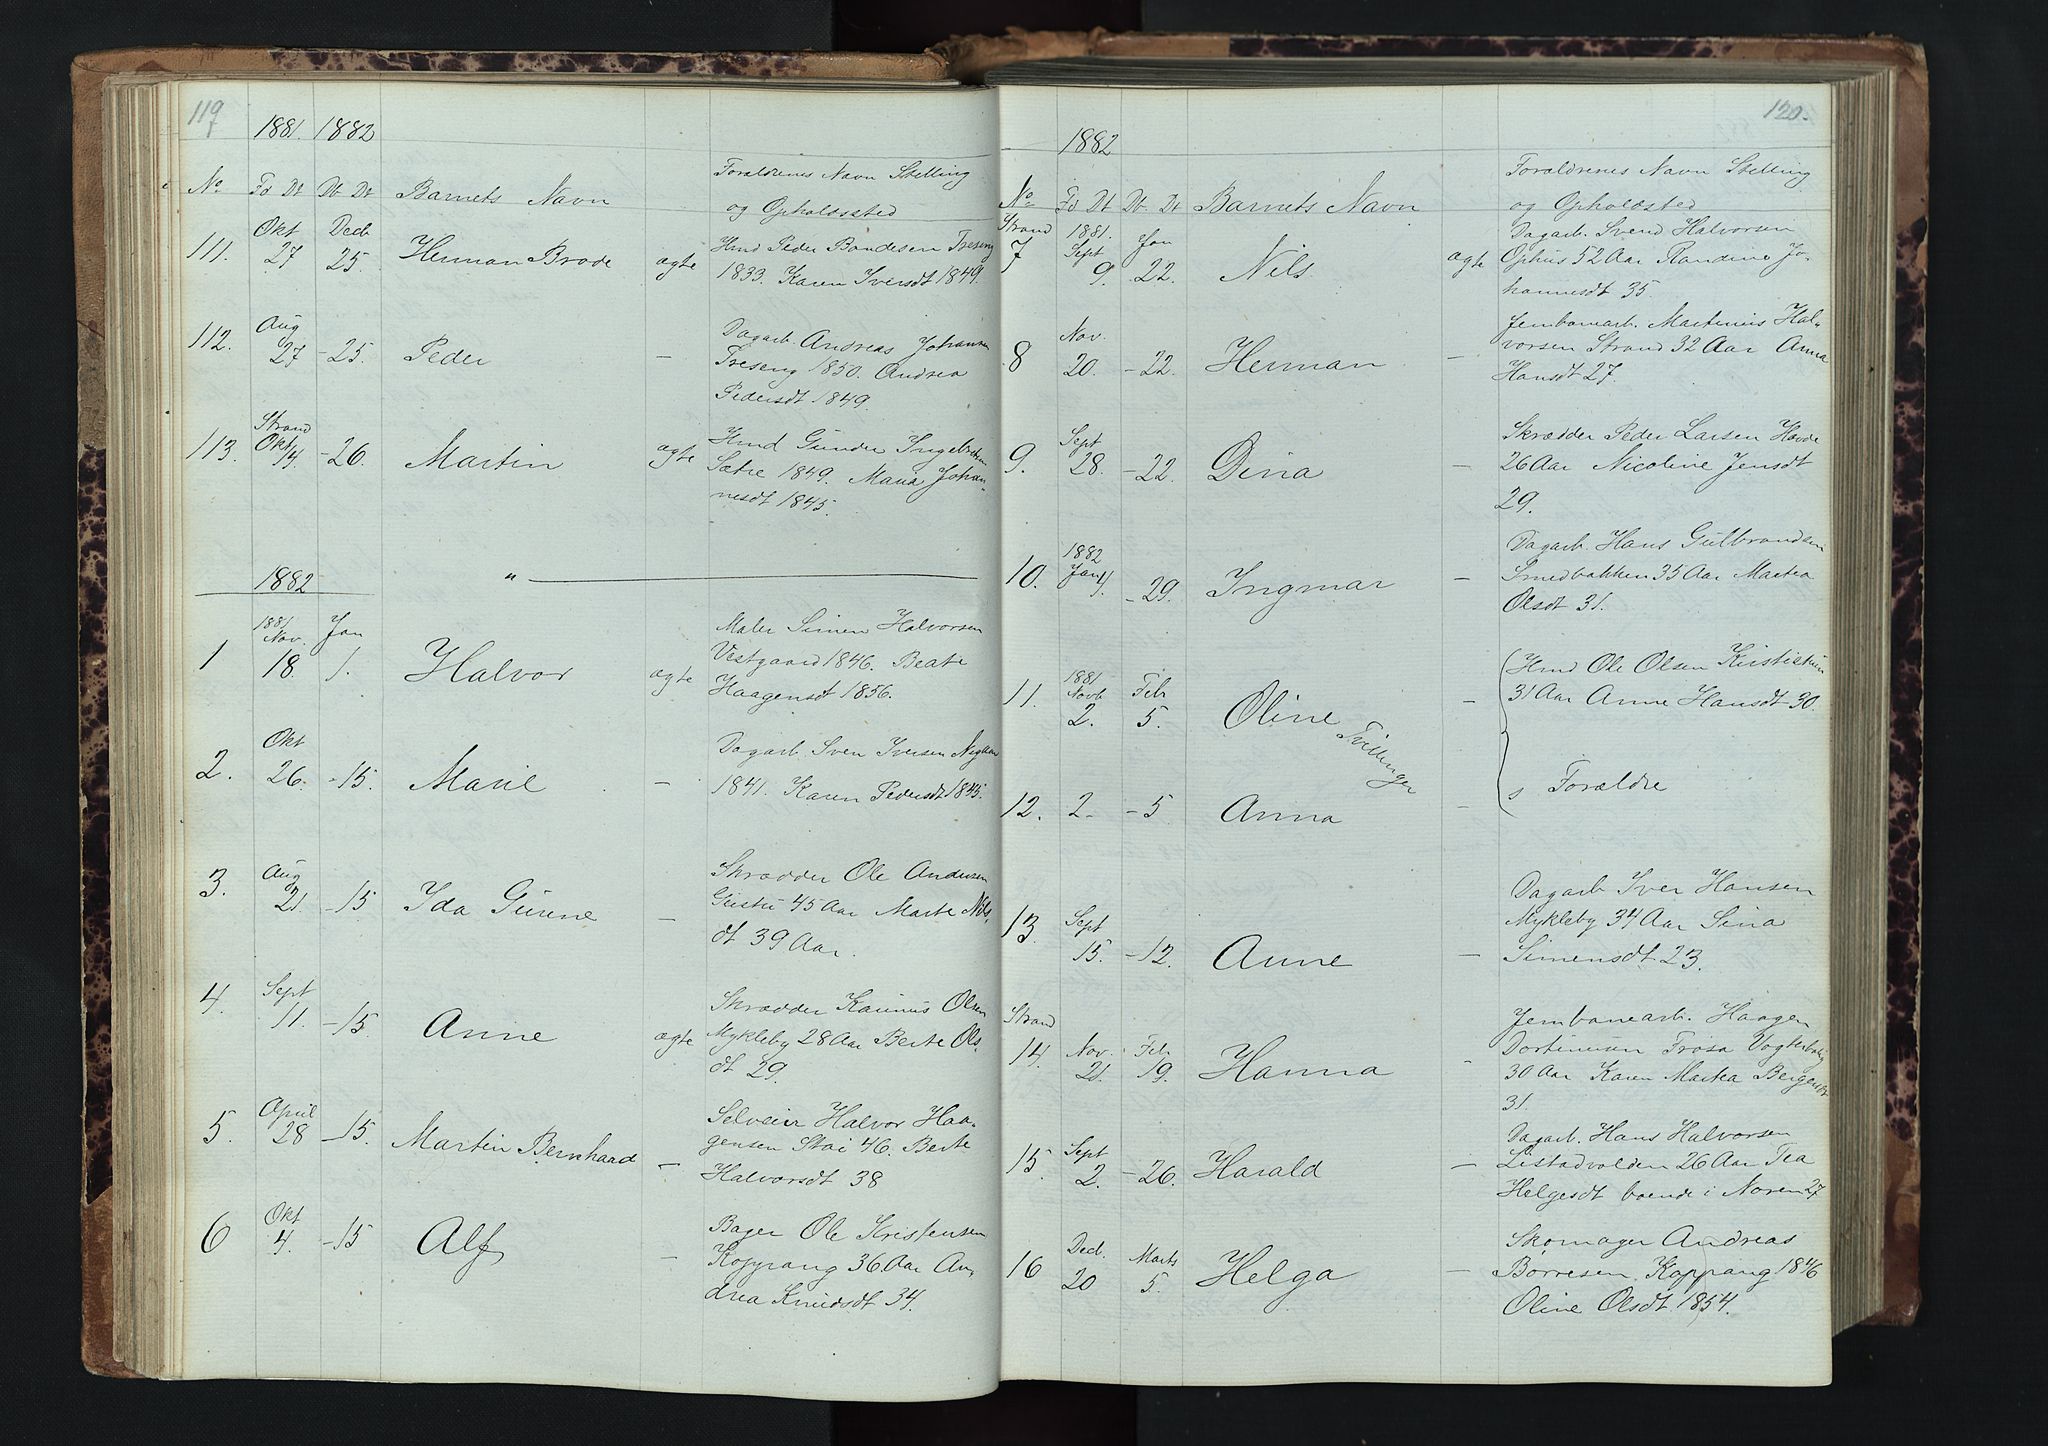 119
1881. 1882
No Fd Dt Db Dt Barnets Navn Forældrenes Navn Stilling
og Opholdssted
Okt Decb
111. 27 25. Herman Brode ægte Hmd Peder Bondesen Treseng
1833. Karen Iversdt 1849.
Aug
112. 27 - 25. Peder - Dagarb. Andreas Johansen
Treseng 1850. Andrea
Pedersdt 1849.
Strand
113. Okt 4. - 26. Martin ægte Hmd Gunder Ingebretsen
Sætre 1849. Maria Johan-
nesdt 1845.
1882 "
1881 Jan
Nov.
1 18. 1. Halvor ægte Maler Simen Halvorsen
Vestgaard 1846. Beate
Haagensdt 1856.
Okt
2. 26. - 15. Marie - Dagarb. Sven Iversen
1841. Karen Pedersdt 1845.
Aug
3. 21. - 15 Ida Gurine - Skrædder Ole Andersen
45 Aar Marte Nils-
dt 39 Aar.
Sept
4. 11. - 15. Anne ægte Skrædder Olsen
Mykleby 28 Aar Berte Ols-
dt 29.
April
5. 28 - 15. Martin Bernhard - Selveier Halvor Haa-
gensen Stai 46. Berte
Halvorsdt 38
Okt
6 4. - 15 Alf - Bager Ole Kristensen
Koppang 36 Aar An-
drea Knudsdt 34.
120.
1882
No Fd Dt Db Dt Barnets Navn Forældrenes Navn Stilling
og Opholdssted
Strand 1881.
7 Sept 9. Jan 22. Nils ægte Dagarb. Svend Halvorsen
Ophus 52 Aar Randine Jo-
hannesdt 35.
Nov.
8 20. - 22. Herman - Jernbanearb. Martinus Hal-
vorsen Strand 32 Aar Anna
Hansdt 27.
Sept
9. 28. - 22. Dina - Skrædder Peder Larsen Hovde
26 Aar Nicoline Jensdt
29.
1882
10. Jan 4. - 29. Ingmar - Dagarb. Hans Gulbrandsen
Smedbakken 35 Aar Martea
Olsdt 31.
1881
11. Novb 2. Feb 5. Oline - Hmd Ole Olsen
31 Aar Anne Hansdt 30.
Tvillinger
12. 2 - - 5 Anna - s Forældre
13. Sept 15. - 12. Anne - Dagarb Iver Hansen
Mykleby 34 Aar Sina
Simensdt 23.
Strand
14. Nov. 21. Feb 19. Hanna - Jernbanearb. Haagen
Dortinusen Trøsa Vogterbolig
30 Aar Karen Martea Bergersdt
31.
15. Sept 2. - 26. Harald - Dagarb. Hans Halvorsen
Listadvolden 26 Aar Tea
Helgesdt boende i Noren 27
16 Decb. 20 Marts 5. Helga - Skomager Andreas
Børresen. Koppang 1846
Oline Olsdt. 1854.